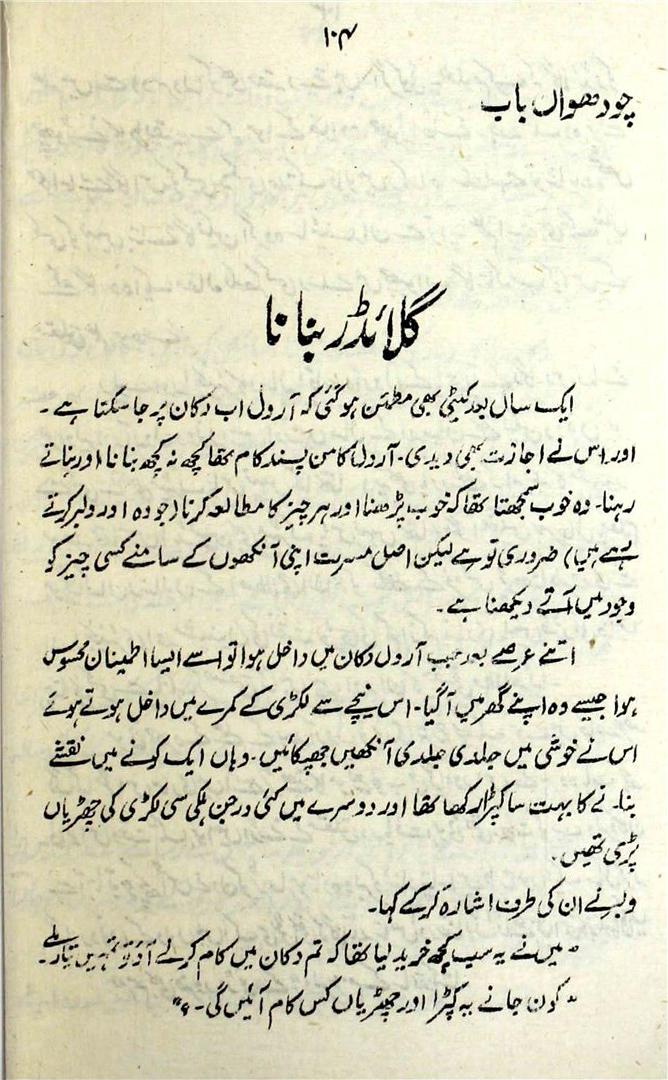 ۱۰۴
چودھواں باب
گلائڈر بنانا
ایک سال بعد کیٹی بھی مطمئن ہو گئی کہ آرول اب دکان پر جا سکتا ہے ۔
اور اس نے اجازت بھی دیدی ۔ آرول کا من پسند کام تھا کچھ نہ کچھ بنانا اور بناتے
رہنا ۔ وہ خوب سمجھتا تھا کہ خوب پڑھنا اور ہر چیز کا مطالعہ کرنا (جو وہ اور ولبر کرتے
رہے ہیں) ضروری تو ہے لیکن اصل مسرت اپنی آنکھوں کے سامنے کسی چیز کو
وجود میں آتے دیکھنا ہے ۔
اتنے عرصے بعد جب آرول دکان میں داخل ہوا تو اسے ایسا اطمینان محسوس
ہوا جیسے وہ اپنے گھر میں آ گیا ۔ اس نیچے سے لکڑی کے کمرے میں داخل ہوتے ہوئے
اس نے خوشی میں جلدی جلدی آنکھیں جھپکائیں ۔ وہاں ایک کونے میں نقشے
بنانے کا بہت سا کپڑا رکھا تھا اور دوسرے میں کئی درجن ہلکی سی لکڑی کی چھڑیاں
پڑی تھیں ۔
ولبر نے ان کی طرف اشارہ کر کے کہا ۔
" میں نے یہ سب کچھ خرید لیا تھا کہ تم دکان میں کام کرنے آؤ تو تمہیں تیار ملے ۔
" کون جانے یہ کپڑا اور چھڑیاں کس کام آئیں گی ۔ "